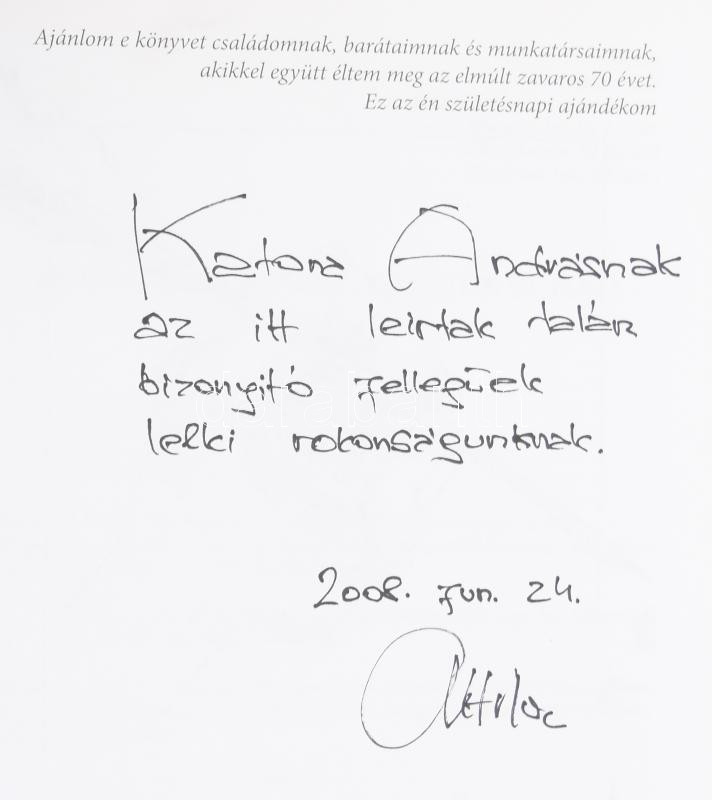 Ajánlom e könyvet családomnak, barátaimnak és munkatársaimnak,
akikkel együtt éltem meg az elmúlt zavaros 70 évet.
Ez az én születésnapi ajándékom
Katona Andrásnak
az itt leirtak talán
bizonyitó jellegűek
lelki rokonságunknak.
2008. jun. 24.
Attila